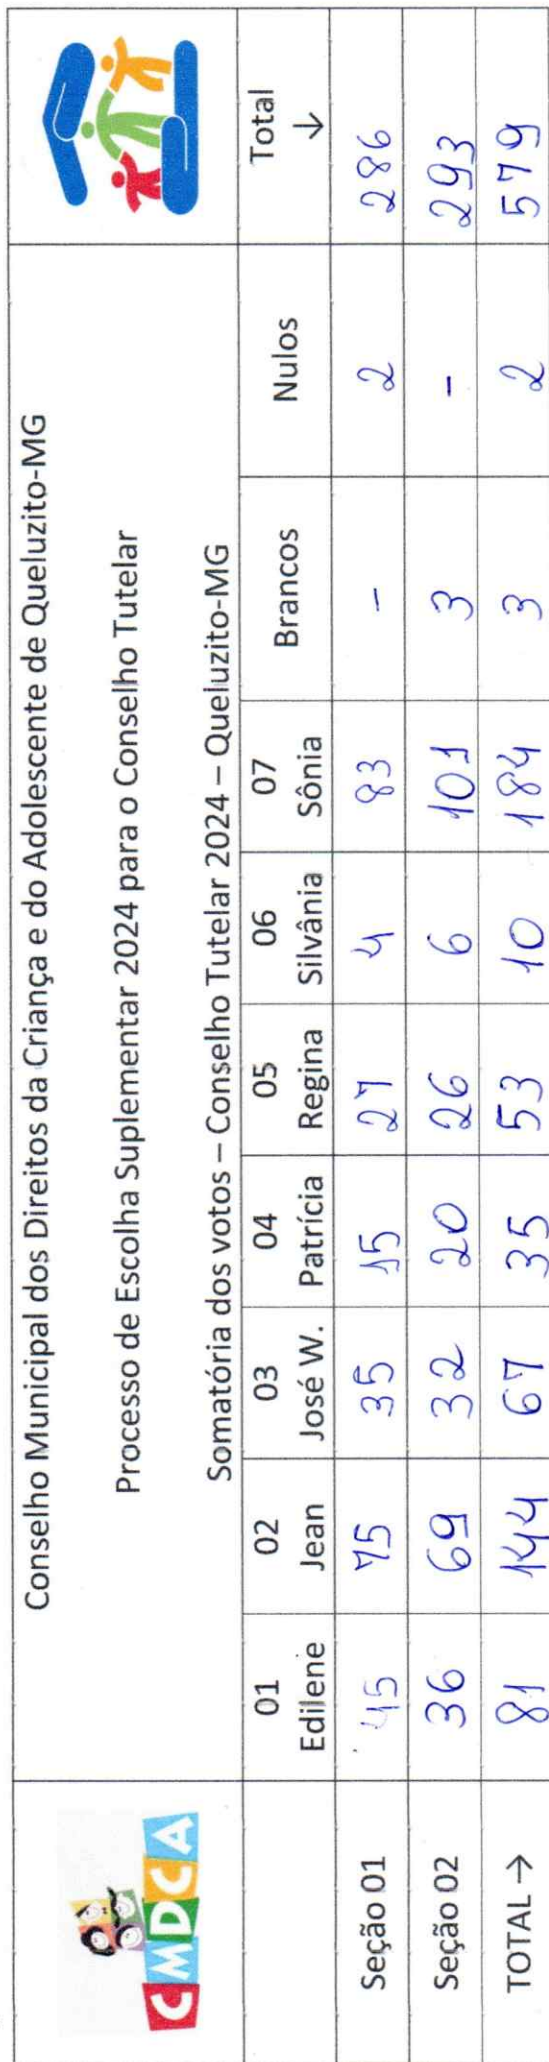 CMDCA
Conselho Municipal dos Direitos da Criança e do Adolescente de Queluzito-MG
Processo de Escolha Suplementar 2024 para o Conselho Tutelar
Somatória dos votos – Conselho Tutelar 2024 – Queluzito-MG
01 Edilene 02 Jean 03 José W. 04 Patrícia 05 Regina 06 Silvânia 07 Sônia Brancos Nulos Total ↓
Seção 01 45 75 35 15 27 4 83 - 2 286
Seção 02 36 69 32 20 26 6 101 3 - 293
TOTAL → 81 144 67 35 53 10 184 3 2 579